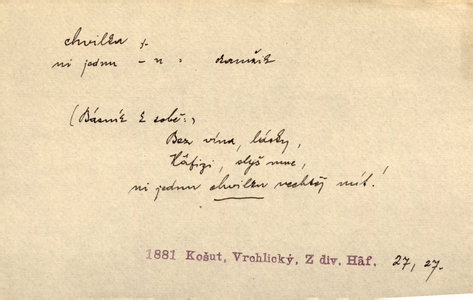 chvilka f.
ni jednu – u : okamžik
(Básník k sobě:)
Bez vína, lásky,
Hâfizi, slyš mne,
ni jednu chvilku nechtěj míti!
1881 Košut, Vrchlický, Z div. Hâf. 27, 27.